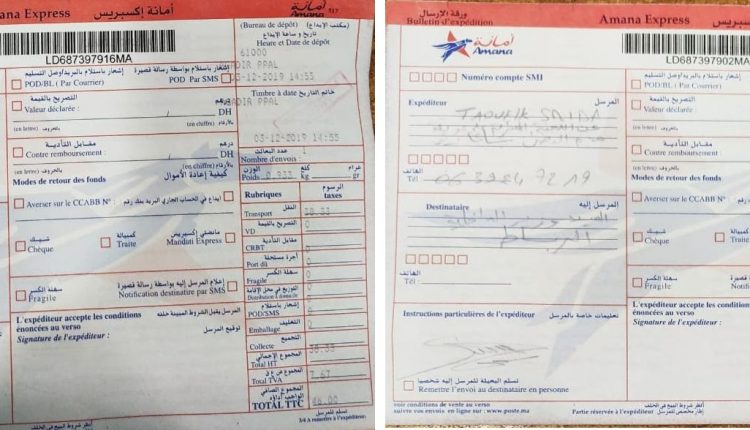 mana Express أمانة إكسبريس
LD687397916MA
أمانة
Amana
(Bureau de dépôt) (مكتب الإيداع)
تاريخ و ساعة الإيداع
Heure et Date de dépôt
61000
03-12-2019 14:55
إشعار باستلام بالبريد/وصل التسليم
POD/BL ( Par Courrier)
إشعار باستلام بواسطة رسالة قصيرة
POD Par SMS
Timbre à date خاتم التاريخ
03-12-2019 14:55
التصريح بالقيمة
Valeur déclarée :
درهم
DH
(en lettre) بالحروف
(en chiffre) بالأرقام
مقابل التأدية
Contre remboursement :
درهم
DH
(en lettre) بالحروف
(en chiffre) بالأرقام
Modes de retour des fonds كيفية إعادة الأموال
عدد البعائث 1
Nombre d'envois :
الوزن كلغ غرام
Poids kg gr
Averser sur le CCABB N° إيداع في الحساب الجاري البريد بنك رقم
شيك
Chèque
كمبيالة
Traite
ماندضي إكسبريس
Mandati Express
سهلة الكسر
Fragile
إعلام المرسل إليه بواسطة رسالة قصيرة
Notification destinataire par SMS
Rubriques الرسوم taxes
النقل
Transport 38.33
التصريح بالقيمة
VD 0
مقابل التأدية
CRBT 0
أجرة مستحقة
Port dû
سهلة الكسر
Fragile 0
التوزيع في محل الإقامة
Distribution à domicile
إشعار باستلام
POD/SMS
التغليف
Emballage
التجميع
Collecte
المجموع الإجمالي
Total HT 38.33
Total TVA 7.67
المجموع الصافي
TOTAL TTC 46.00
L'expéditeur accepte les conditions
énoncées au verso
Signature de l'expéditeur :
المرسل يقبل الشروط المبينة خلفه
توقيع المرسل
أنظر شروط البيع في الخلف
تسلم للمرسل
3/4 A remettre à l'expéditeur
ورقة الإرسال
Bulletin d'expédition
Amana Express أمانة إكسبريس
أمانة
Amana
LD687397902MA
Numéro compte SMI
Expéditeur المرسل
TAOUFIK SAIDA
الهاتف
Tél :
Destinataire المرسل إليه
السيد وزير الداخلية
الرباط
الهاتف
Tél :
Instructions particulières de l'expéditeur تعليمات خاصة بالمرسل
تسلم البعيثة للمرسل إليه شخصيا
Remettre l'envoi au destinataire en personne
voir conditions de vente au verso
suivre vos envois en ligne sur : www.poste.ma
إشعار باستلام بالبريد/وصل التسليم
POD/BL ( Par Courrier)
التصريح بالقيمة
Valeur déclarée :
(en lettre) بالحروف
مقابل التأدية
Contre remboursement :
(en lettre) بالحروف
Modes de retour des fonds
Averser sur le CCABB N°
شيك
Chèque
كمبيالة
Traite
سهلة الكسر
Fragile
L'expéditeur accepte les conditions
énoncées au verso
Signature de l'expéditeur :
أنظر شروط البيع في الخلف
Partie réservée à l'expéditeur